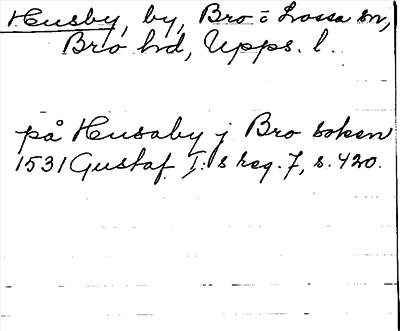 Husby, by, Bro o Lossa sn,
Bro hd, Upps. l.
på Husaby j Bro soken
1531 Gustaf I:s reg. 7, s. 420.